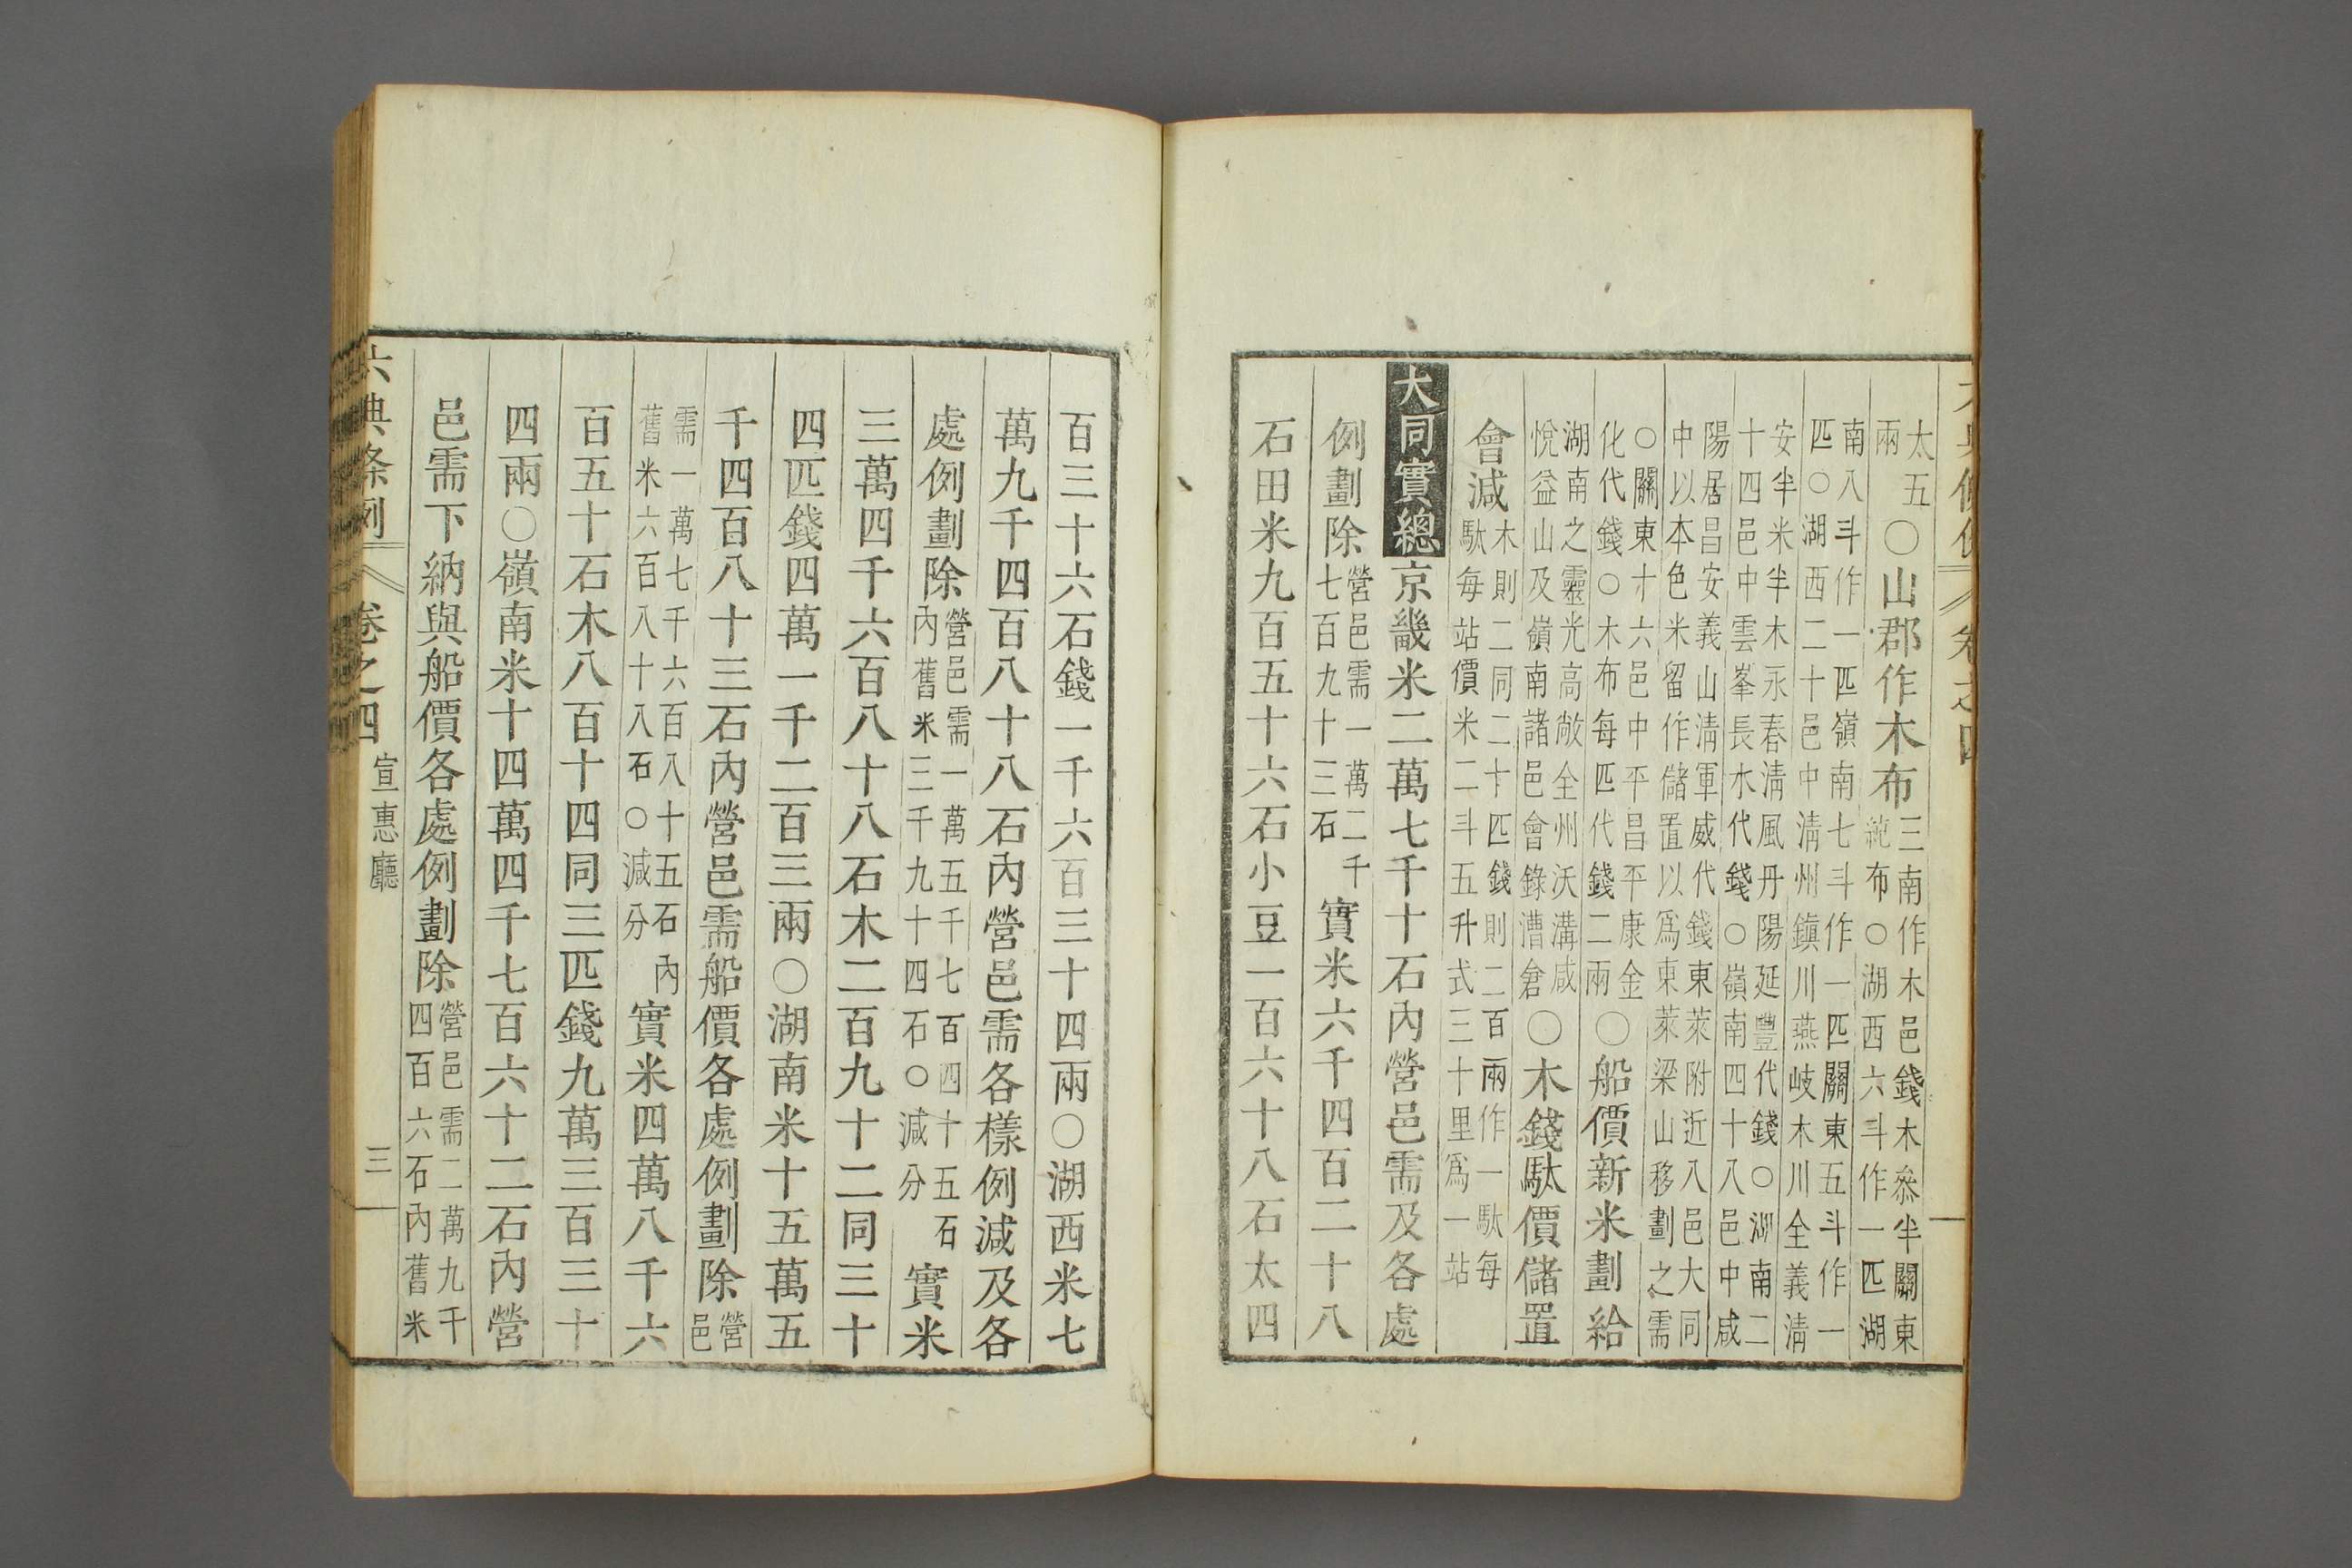 太五
兩
○山郡作木布
三南作木邑錢木叅半關東
純布○湖西六斗作一匹湖
南八斗作一匹嶺南七斗作一匹關東五斗作一
匹○湖西二十邑中淸州鎭川燕岐木川全義淸
安半米半木永春淸風丹陽延豐代錢○湖南二
十四邑中雲峯長水代錢○嶺南四十八邑中咸
陽居昌安義山淸軍威代錢東萊附近八邑大同
中以本色米留作儲置以爲東萊梁山移劃之需
○關東十六邑中平昌平康金
化代錢○木布每匹代錢二兩
○船價新米劃給
湖南之靈光高敞全州沃溝咸
悅益山及嶺南諸邑會錄漕倉
○木錢駄價儲置
會減
木則二同二十匹錢則二百兩作一駄每
駄每站價米二斗五升式三十里爲一站
大同實總京畿米二萬七千十石內營邑需及各處
例劃除
營邑需一萬二千
七百九十三石
實米六千四百二十八
石田米九百五十六石小豆一百六十八石太四
百三十六石錢一千六百三十四兩○湖西米七
萬九千四百八十八石內營邑需各樣例減及各
處例劃除
營邑需一萬五千七百四十五石
內舊米三千九十四石○減分
實米
三萬四千六百八十八石木二百九十二同三十
四匹錢四萬一千二百三兩○湖南米十五萬五
千四百八十三石內營邑需船價各處例劃除
營
邑
需一萬七千六百八十五石內
舊米六百八十八石○減分
實米四萬八千六
百五十石木八百十四同三匹錢九萬三百三十
四兩○嶺南米十四萬四千七百六十二石內營
邑需下納與船價各處例劃除
營邑需二萬九千
四百六石內舊米
六典條例
卷之四
宣惠廳
三